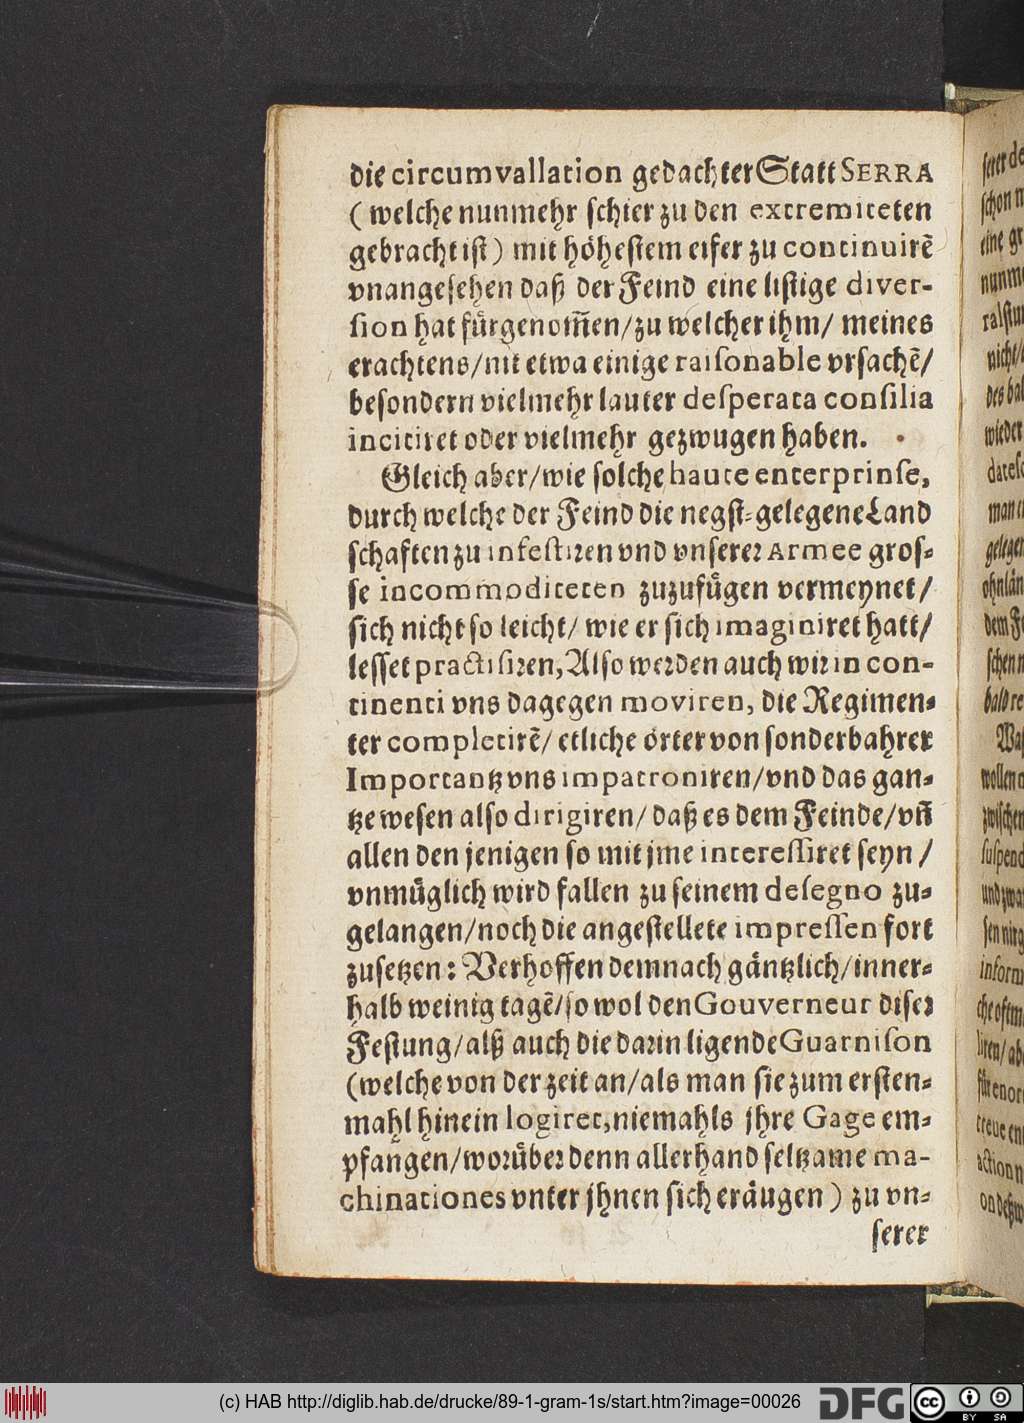 die circumvallation gedachter Statt SERRA
( welche nunmehr schier zu den extremiteten
gebracht ist ) mit höhestem eifer zu continuirẽ
vnangesehen daß der Feind eine listige diver-
sion hat fürgenom̃en/ zu welcher ihm/ meines
erachtens/ nit etwa einige raisonable vrsachẽ/
besondern vielmehr lauter desperata consilia
incitiret oder vielmehr gezwugen haben.
Gleich aber/ wie solche haute enterprinse,
durch welche der Feind die negst-gelegene Land
schaften zu infestiren vnd vnserer Armee gros-
se incommoditeten zuzufügen vermeynet/
sich nicht so leicht/ wie er sich imaginiret hatt/
lesset practisiren, Also werden auch wir in con-
tinenti vns dagegen moviren, die Regimen-
ter completirẽ/ etliche örter von sonderbahrer
Importantz vns impatroniren/ vnd das gan-
tze wesen also dirigiren/ daß es dem Feinde/ vñ
allen den jenigen so mit jme interessiret seyn /
vnmüglich wird fallen zu seinem desegno zu-
gelangen/ noch die angestellete impressen fort
zusetzen: Verhoffen demnach gäntzlich/ inner-
halb weinig tagẽ/ so wol den Gouverneur diser
Festung/ alß auch die darin ligende Guarnison
(welche von der zeit an/ als man sie zum ersten-
mahl hinein logiret, niemahls jhre Gage em-
pfangen/ worüber denn allerhand seltzame ma-
chinationes vnter jhnen sich eräugen ) zu vn-
serer
(c) HAB http://diglib.hab.de/drucke/89-1-gram-1s/start.htm?image=00026
DFG
cc BY SA